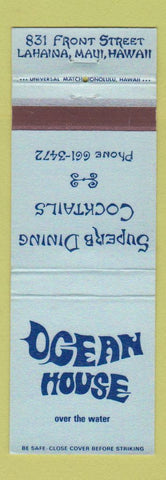 831 FRONT STREET
LAHAINA, MAUI, HAWAII
UNIVERSAL MATCH HONOLULU, HAWAII
PHONE 661-3472
COCKTAILS
SUPERB DINING
OCEAN
HOUSE
over the water
BE SAFE-CLOSE COVER BEFORE STRIKING